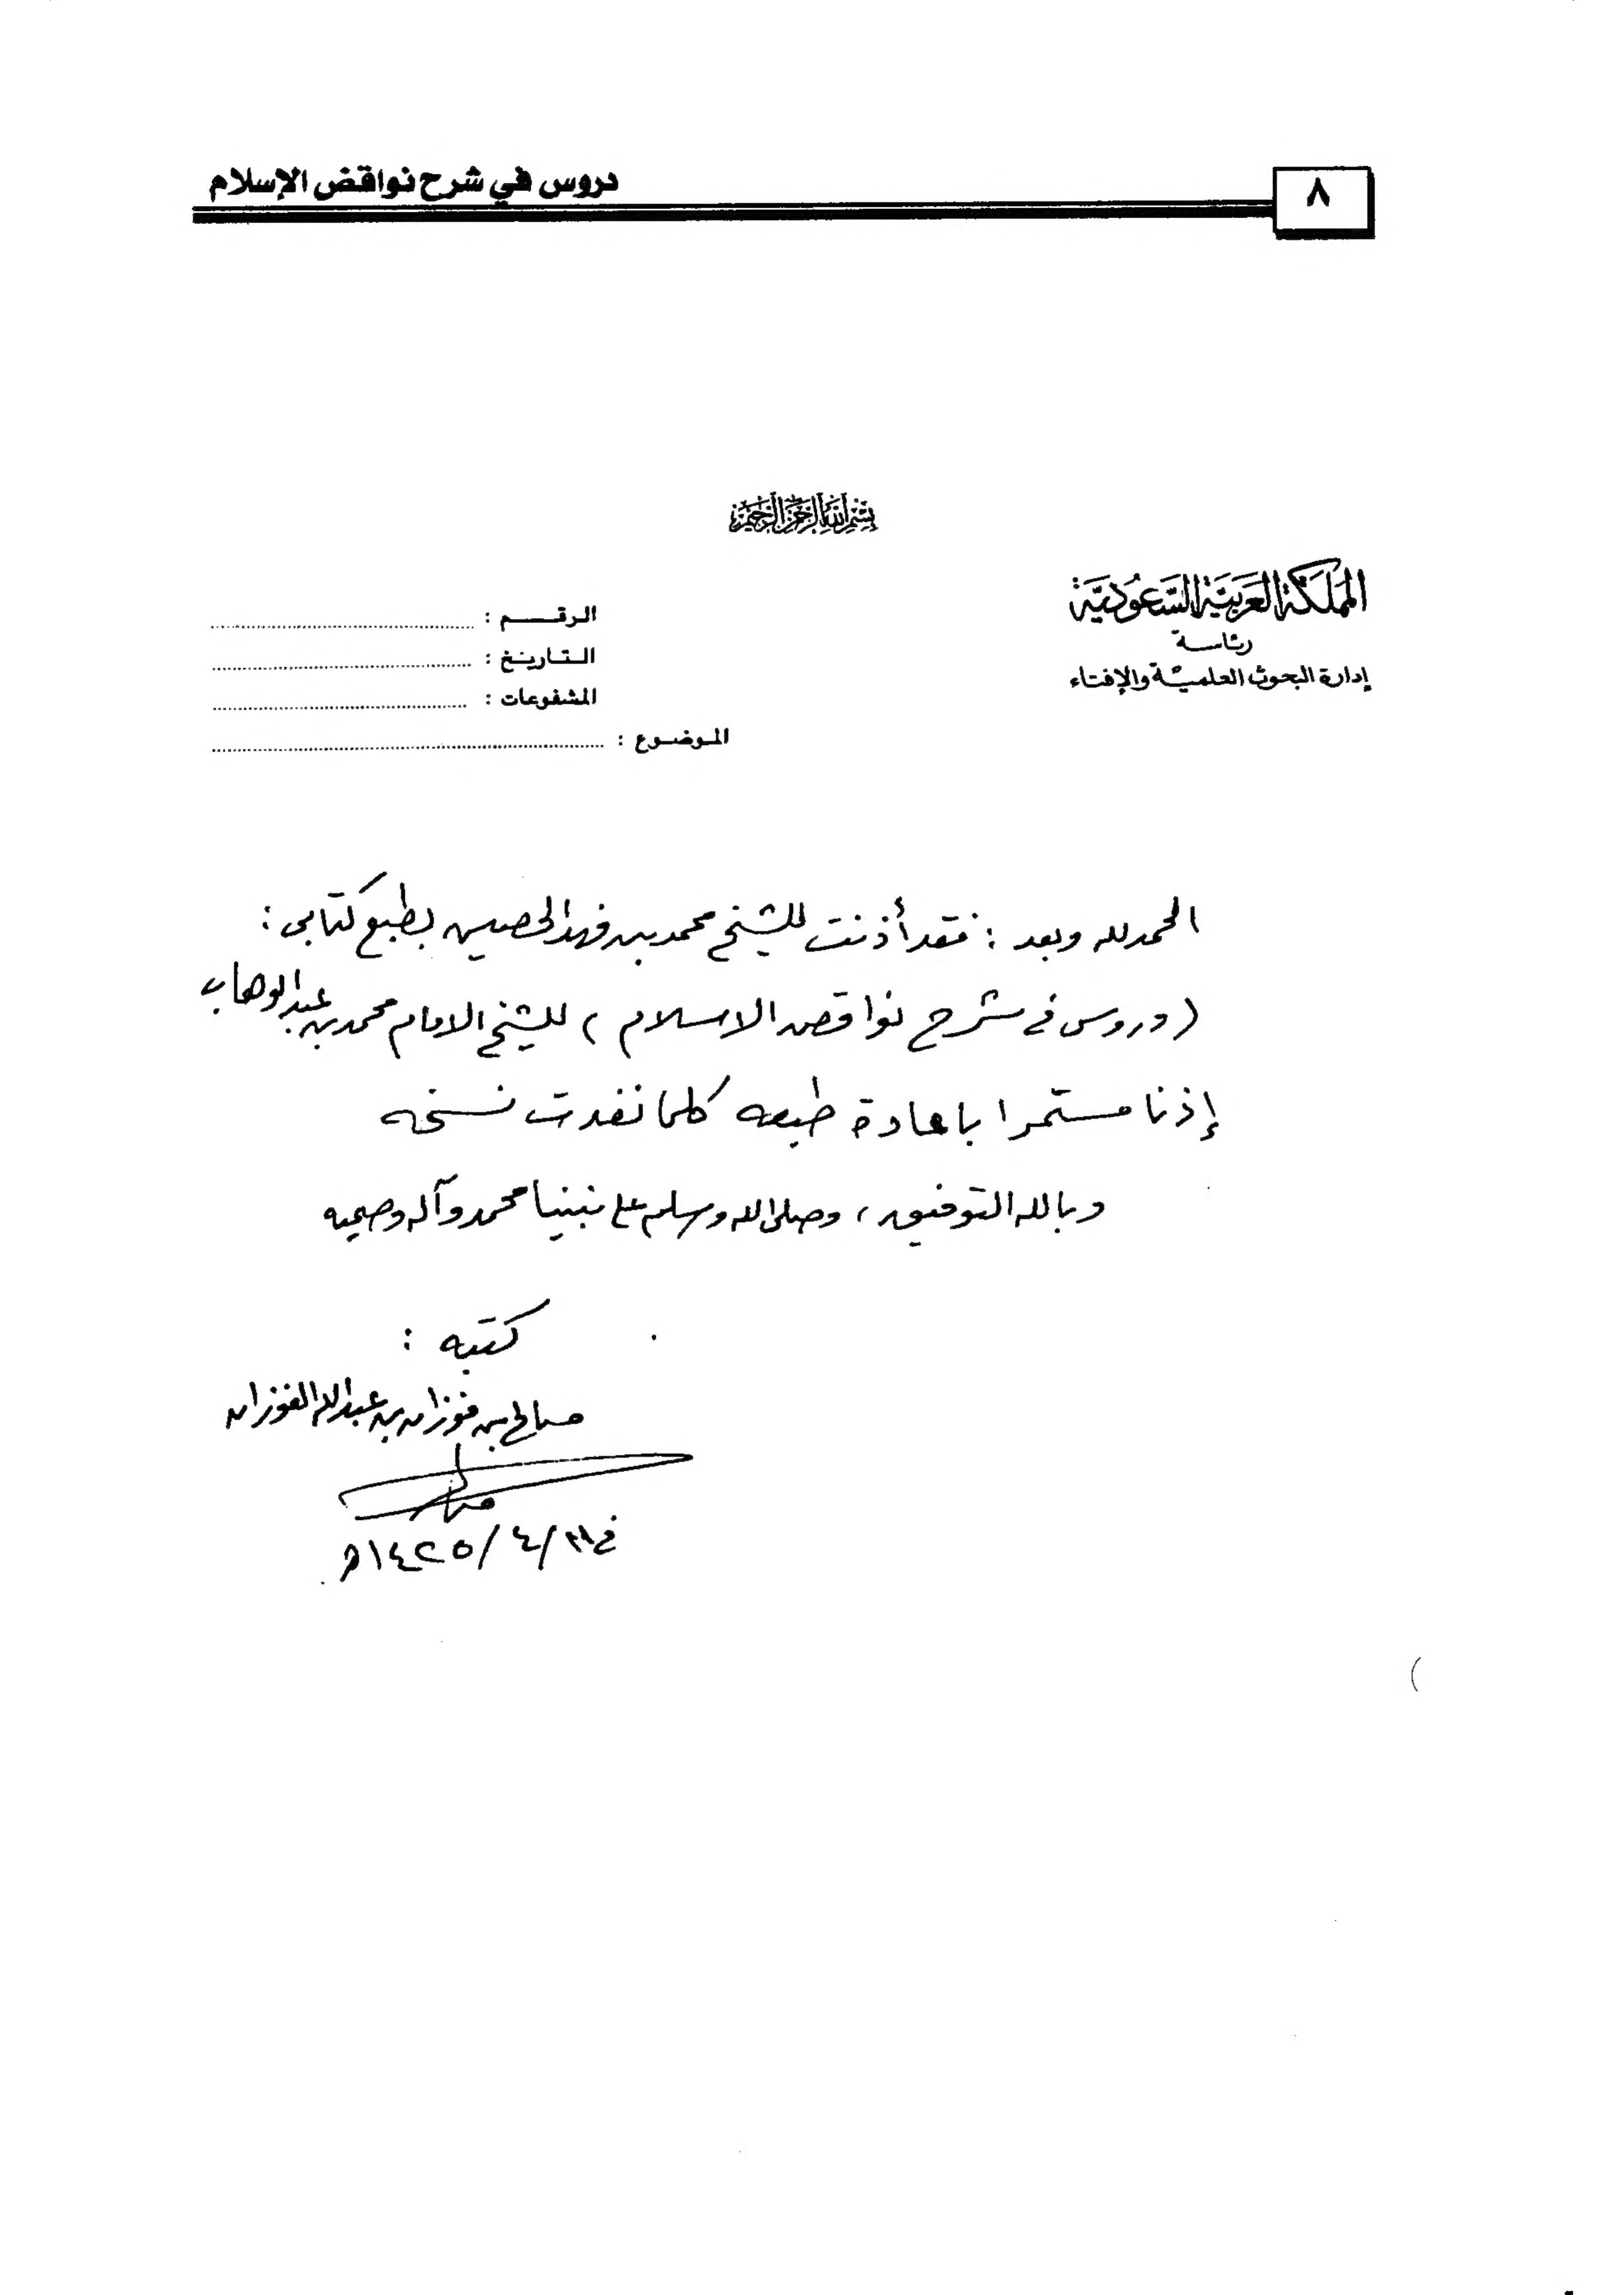 ٨
دروس في شرح نواقض الإسلام
بسم الله الرحمن الرحيم
المملكة العربية السعودية
رئاسة
إدارة البحوث العلمية والإفتاء
الرقم :
التاريخ :
المشفوعات :
الموضوع :
الحمد لله وبعد : فقد أذنت للشيخ محمد بن فهد الحصين بطبع كتابي :
(دروس في شرح نواقض الاسلام) للشيخ الامام محمد بن عبد الوهاب
إذنا مستمرا باعادة طبعه كلما نفدت نسخه
وبالله التوفيق ، وصلى الله وسلم على نبينا محمد وآله وصحبه
كتبه :
صالح بن فوزان بن عبد الله الفوزان
في /٤/١٤٢٥هـ